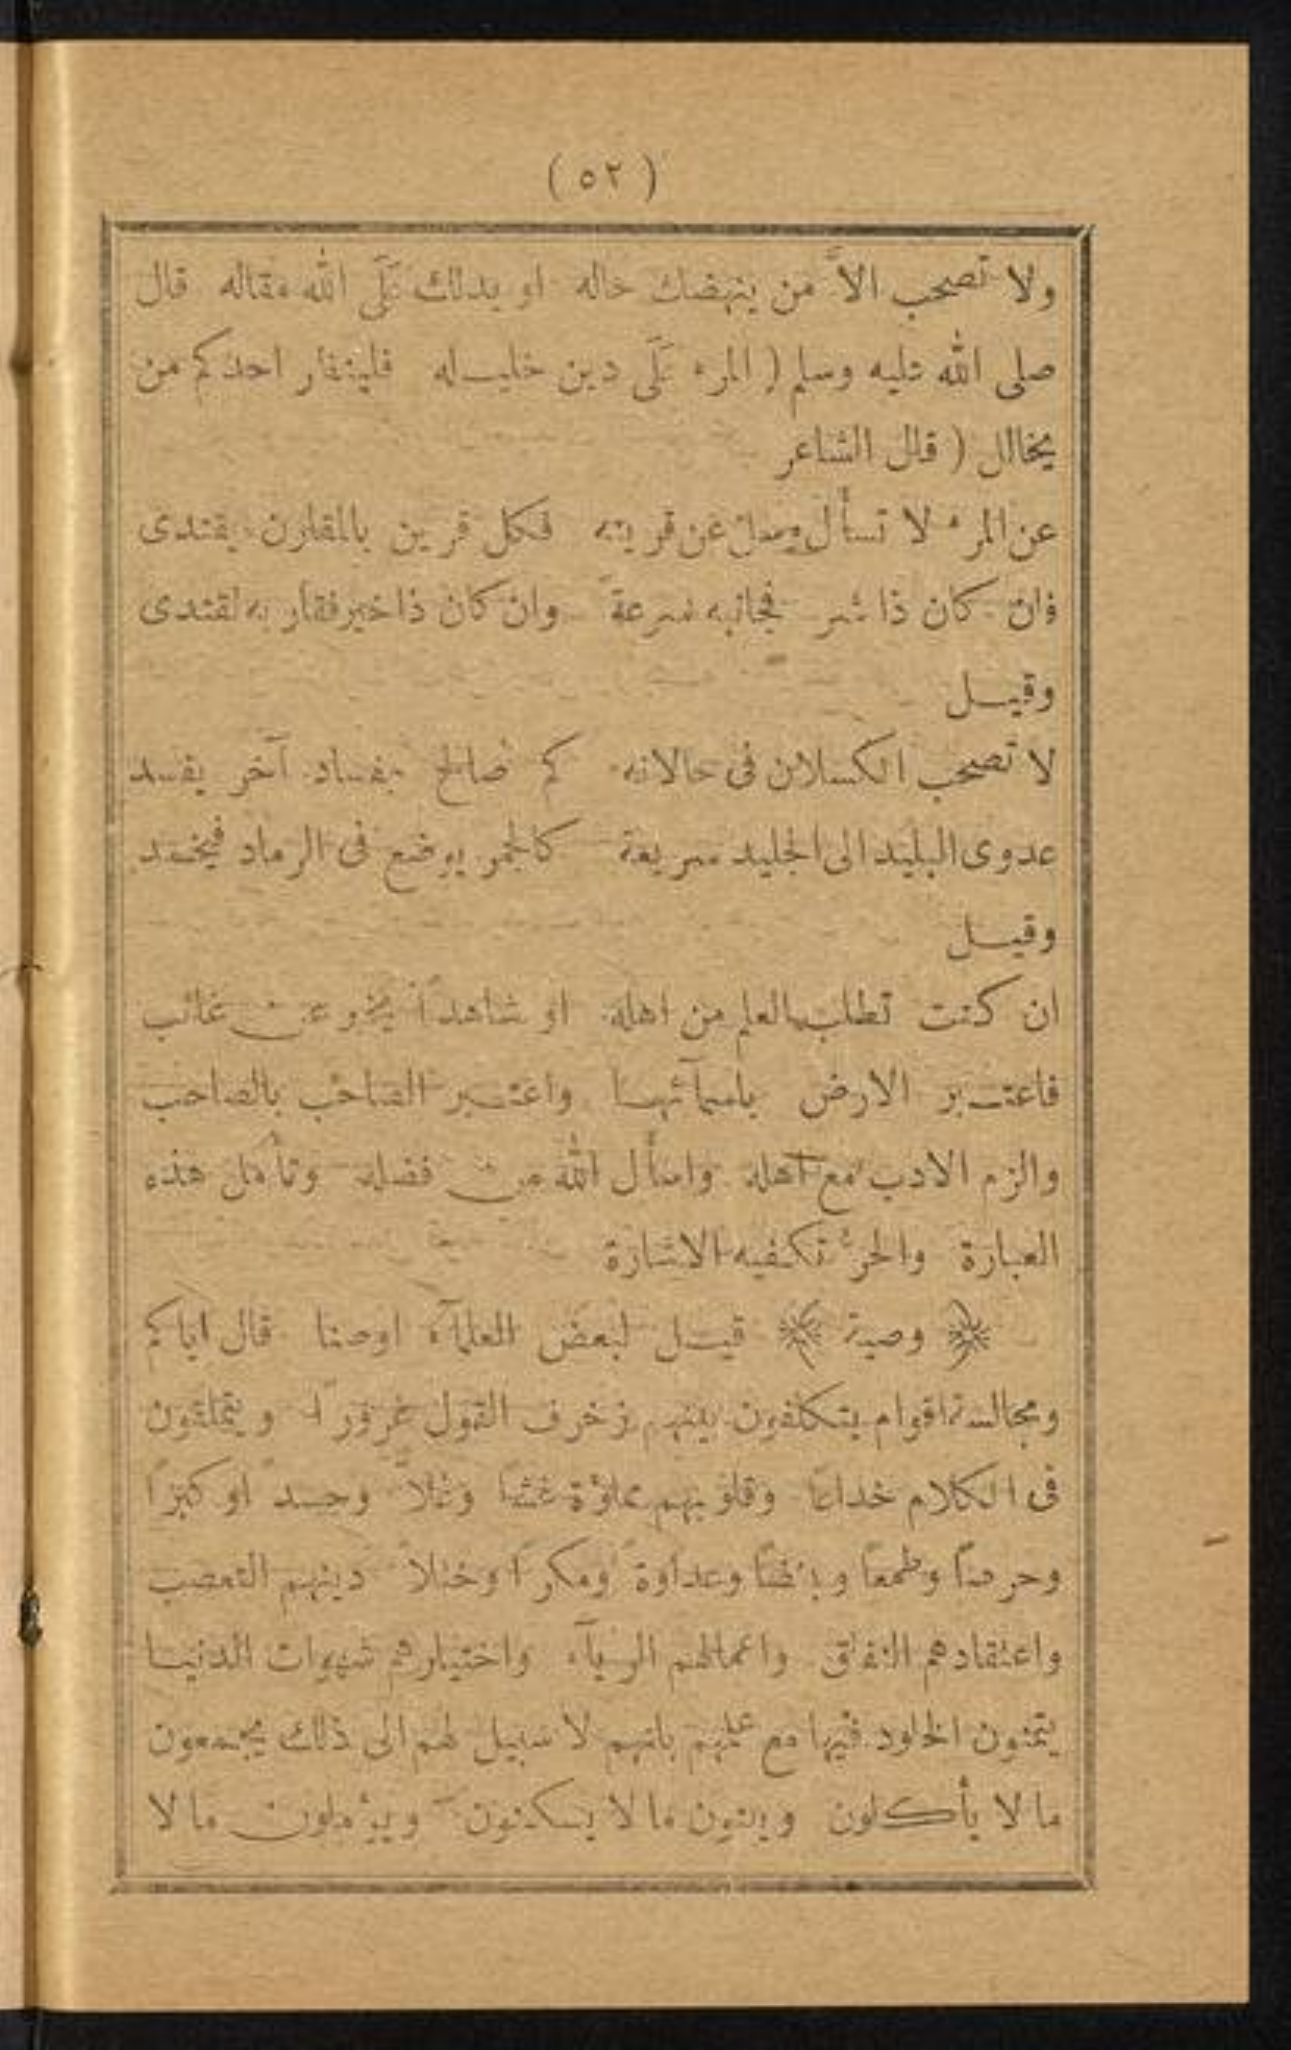 ( ٥٢ )
ولا تصحب الاَّ من ينهضك حاله او يدلك عَلَى الله مقاله قال
صلى الله عليه وسلم ( المرء عَلَى دين خليله فلينظر احدكم من
يخالل ( قال الشاعر
عن المرء لا تسأل وسل عن قرينه فكل قرين بالمقارن يقتدى
فان كان ذا شر فجانبه سرعة وان كان ذا خير فقارنه لقتدى
وقيل
لا تصحب الكسلان فى حالاته كم صالح بفساد آخر يفسد
عدوى البليد الى الجليد سريعة كالجمر يوضع فى الرماد فيخمد
وقيل
ان كنت تطلب العلم من اهله او شاهدًا يخبر عن غائب
فاعتبر الارض باسمآئها واعتبر الصاحب بالصاحب
والزم الادب مع اهله واسأل الله من فضله وتأمل هذه
العبارة والحرُّ تكفيه الاشارة
وصية قيل لبعض العلمآء اوصنا قال اياكم
ومجالسة اقوام يتكلفون بينهم زخرف القول غرورًا ويتملقون
فى الكلام خداعًا وقلوبهم مملؤة غشًا وغلاً وحسدًا وكبرًا
وحرصًا وطمعًا وبغضًا وعداوةً ومكرًا وختلاً دينهم التعصب
واعتقادهم النفاق واعمالهم الريآء واختيارهم شهوات الدنيا
يتمنون الخلود فيها مع علمهم بانهم لا سبيل لهم الى ذلك يجمعون
ما لا يأكلون ويبنون ما لا يسكنون ويؤملون ما لا